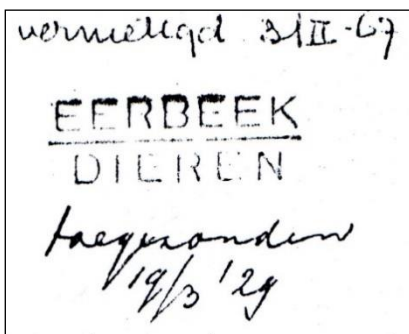 vernietigd 3/II-67
EERBEEK
DIEREN
toegezonden
19/3 '29